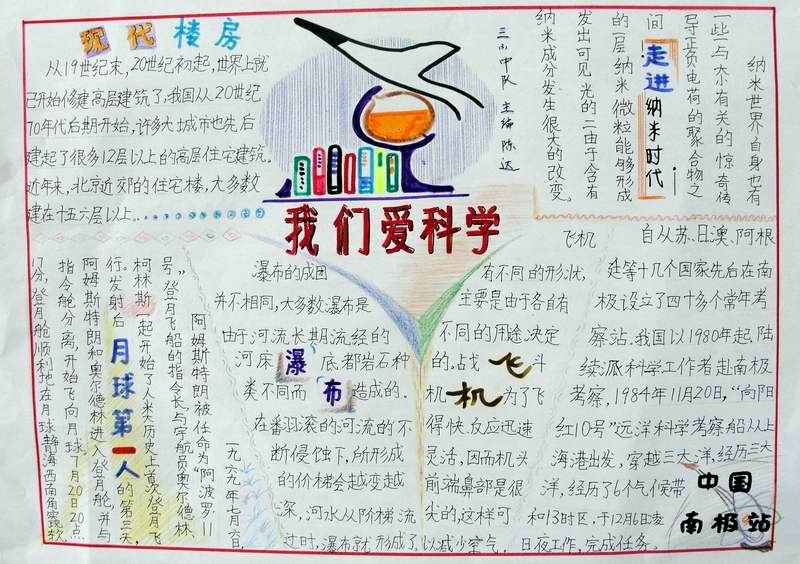 现代楼房
从19世纪末，20世纪初起，世界上就
已开始修建高层建筑了，我国从20世纪
70年代后期开始，许多大城市也先后
建起了很多12层以上的高层住宅建筑。
近年末，北京近郊的住宅楼，大多数
建在十五六层以上
中队 主编 陈达
走进纳米时代
纳米世界自身也有
一些与 有关的惊奇传
导正负电荷的聚合物之
间
的一层纳米微粒能够形成
发出可见光的二由于含有
纳米成分发生很大的改变。
我们爱科学
月球第一人
一九六九年七月六日，
阿姆斯特朗被任命为“阿波罗11
号”登月飞船的指令长，与宇航员奥尔德林、
柯林斯一起开始了人类历史上首次登月飞
行。发射后的第三天，
阿姆斯特朗和奥尔德林进入登月舱，并与
指令舱分离，开始飞向月球。7月20日20点
17分，登月舱顺利地在月球静海西南角
瀑布
瀑布的成因
并不相同，大多数瀑布是
由于河流长期流经的
河床底都岩石种
类不同而造成的。
在番羽滚的河流的不
断侵蚀下，所形成
的价梯会越变越
深，河水从阶梯流
过时，瀑布就形成了。
飞机
飞机
有不同的形状，
主要是由于各自有
不同的用途决定
的。战斗
机为了飞
得快，反应迅速
灵活，因而机头
前端鼻部是很
尖的，这样可
以减少空气。
自从苏、日、澳、阿根
廷等十几个国家先后在南
极设立了四十多个常年考
察站。我国以1980年起，陆
续派科学工作者赴南极
考察，1984年11月20日，“向阳
红10号”远洋科学考察船从上
海港出发，穿越三大洋，经历三大
洋，经历了6个气候带
和13时区，于12月6日凌
日夜工作，完成任务。
中国
南极站